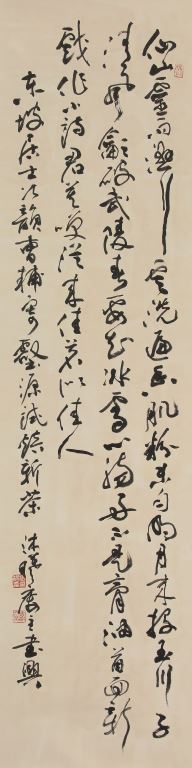 仙山靈雨濕行雲洗遍香肌粉未勻明月來投玉川子
清風吹破武陵春要知冰雪心腸好不是膏油首面新
戲作小詩君莫笑從來佳茗似佳人
東坡居士次韻曹輔寄壑源試焙新茶 主書興